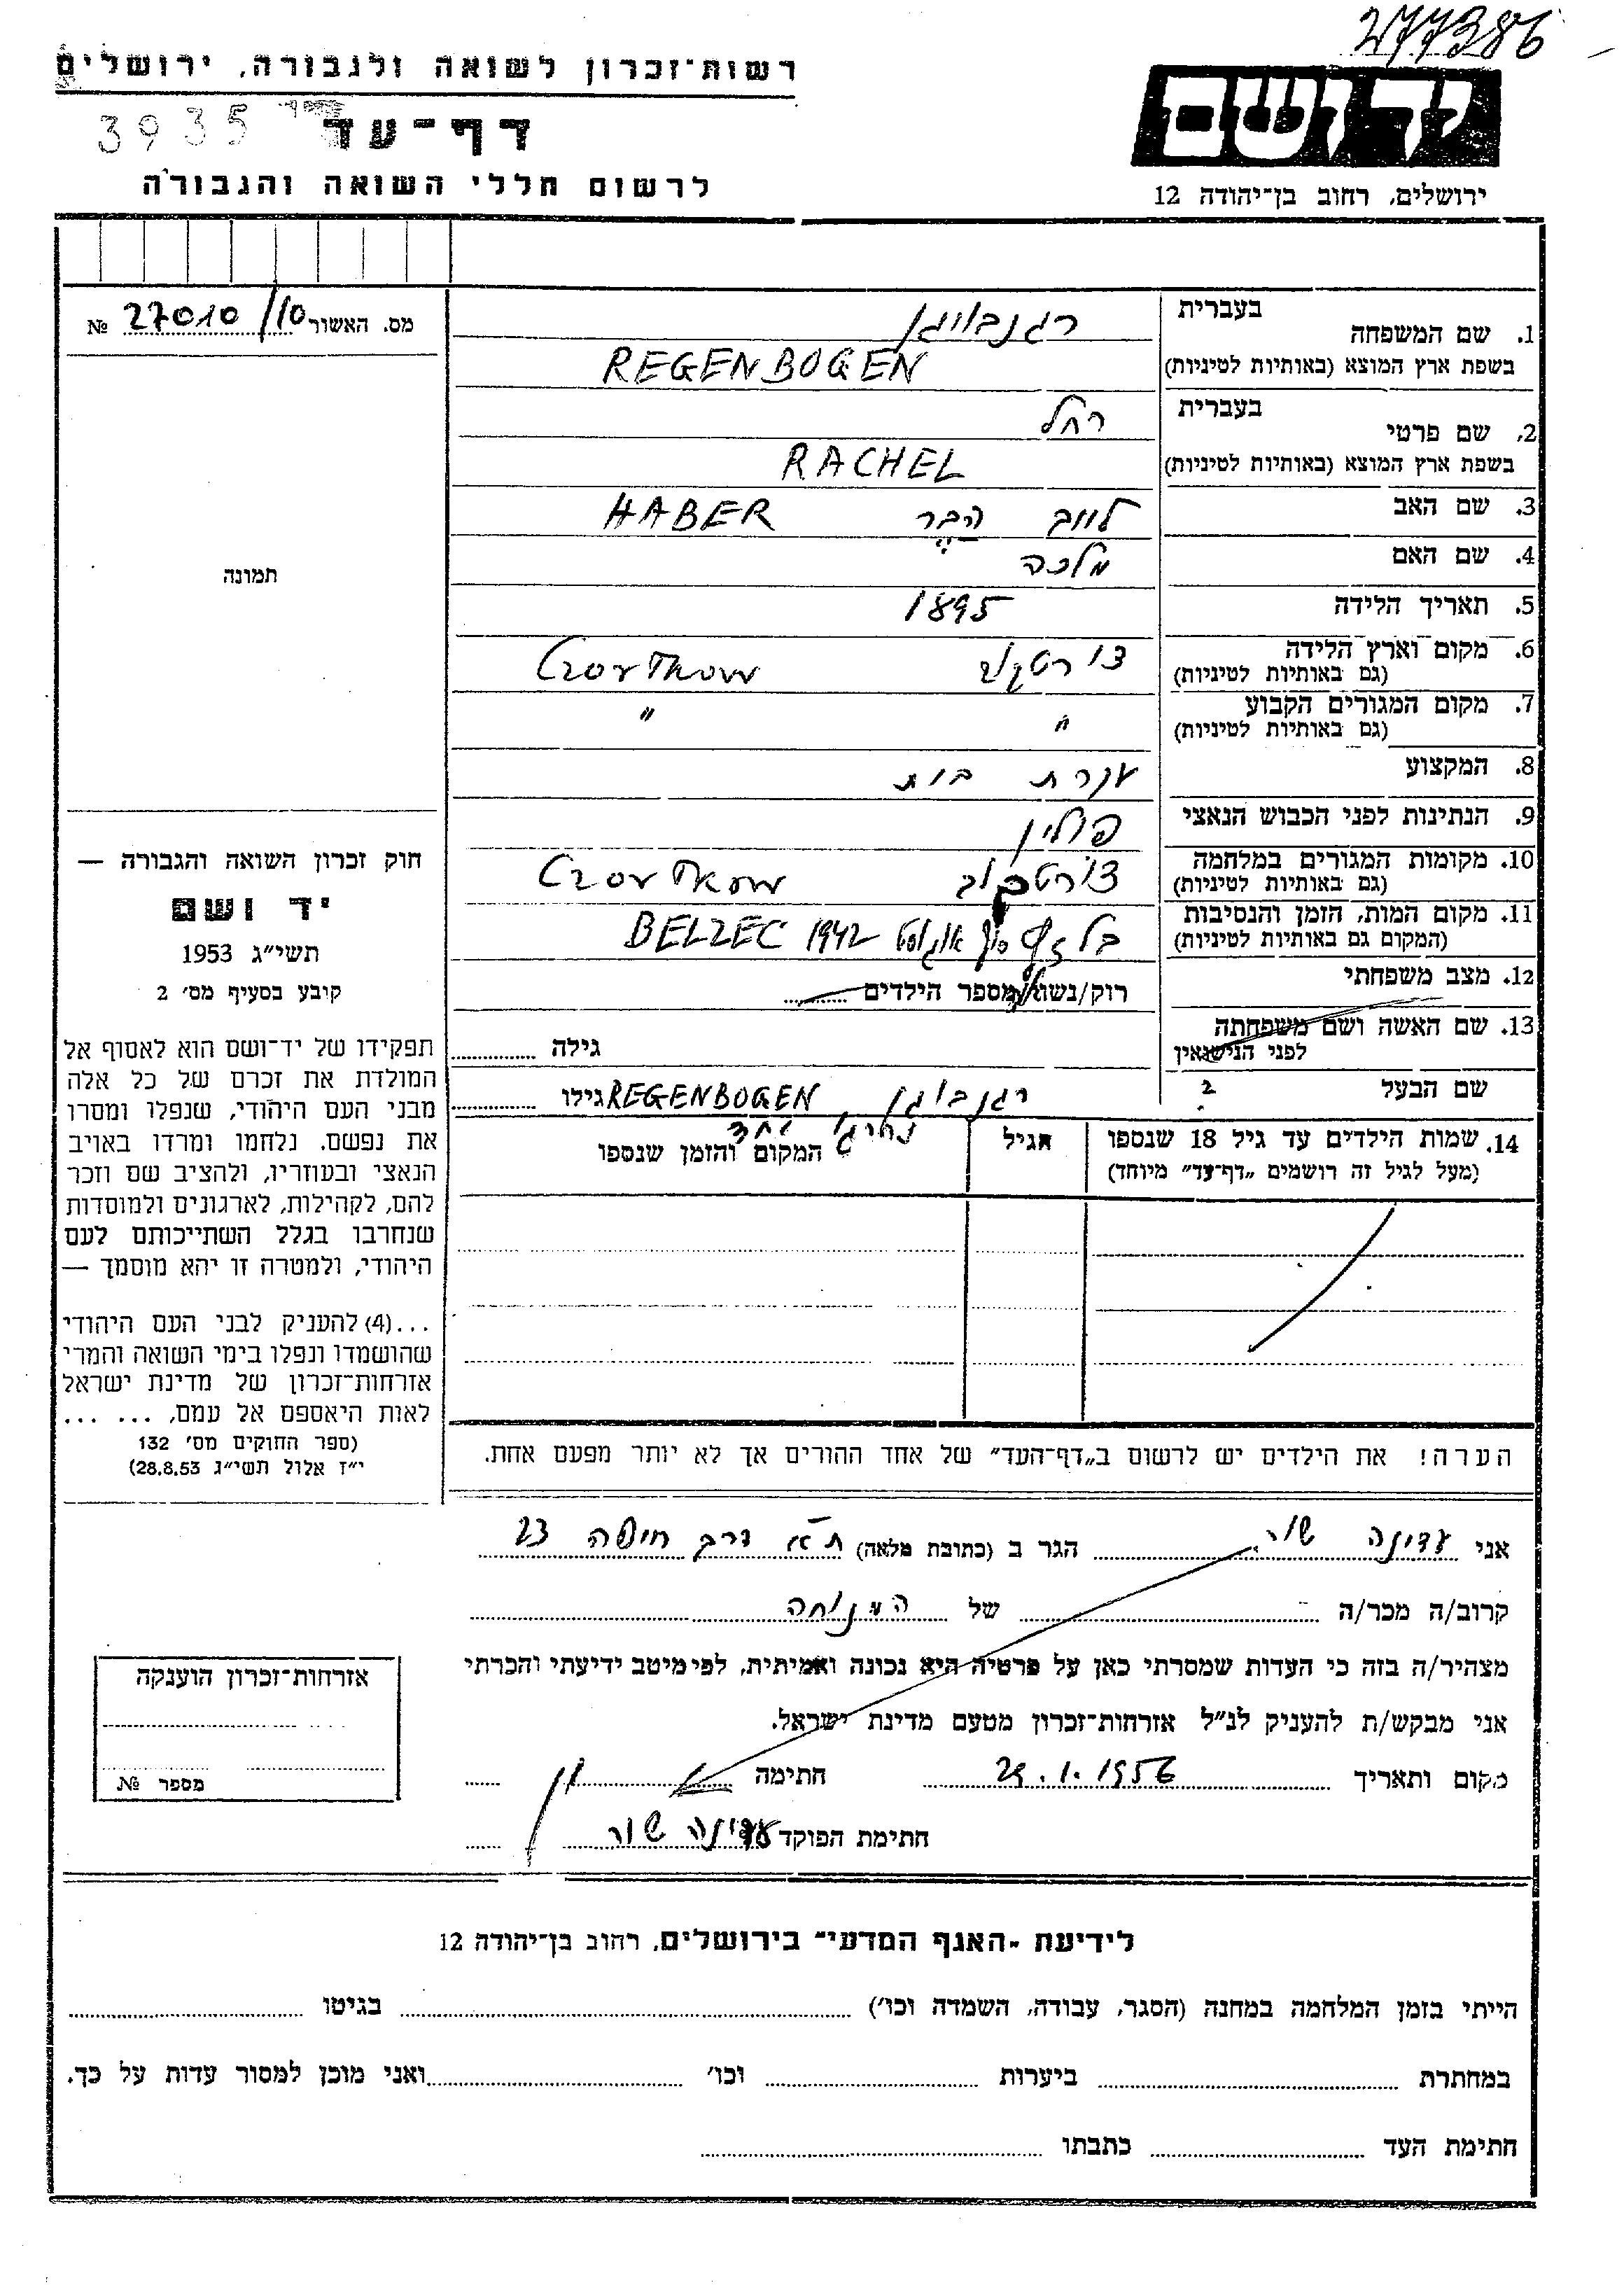 277386
רשות־זכרון לשואה ולגבורה, ירושלים
3935
דף־עד
לרשום חללי השואה והגבורה
יד ושם
ירושלים, רחוב בן־יהודה 12
מס. האשור 27010/10 №
בעברית
1. שם המשפחה
רגנבויגן
בשפת ארץ המוצא (באותיות לטיניות)
REGENBOGEN
בעברית
2. שם פרטי
רחל
בשפת ארץ המוצא (באותיות לטיניות)
RACHEL
3. שם האב
הבר HABER
4. שם האם
מלכה
5. תאריך הלידה
1895
6. מקום וארץ הלידה
(גם באותיות לטיניות)
צ'ורטקוב Czortkow
7. מקום המגורים הקבוע
(גם באותיות לטיניות)
" "
8. המקצוע
עקרת בית
9. הנתינות לפני הכבוש הנאצי
פולין
10. מקומות המגורים במלחמה
(גם באותיות לטיניות)
צ'ורטקוב Czortkow
11. מקום המות, הזמן והנסיבות
(המקום גם באותיות לטיניות)
בלזץ סוף אוגוסט 1942 BELZEC
12. מצב משפחתי
רוק/נשוי/מספר הילדים
13. שם האשה ושם משפחתה
לפני הנישואין
גילה
שם הבעל
? רגנבויגן REGENBOGEN גילו
14. שמות הילדים עד גיל 18 שנספו
(מעל לגיל זה רושמים „דף־עד״ מיוחד)
הגיל
המקום והזמן שנספו
הערה! את הילדים יש לרשום ב„דף־העד״ של אחד ההורים אך לא יותר מפעם אחת.
תמונה
חוק זכרון השואה והגבורה —
יד ושם
תשי״ג 1953
קובע בסעיף מס׳ 2
תפקידו של יד־ושם הוא לאסוף אל
המולדת את זכרם של כל אלה
מבני העם היהודי, שנפלו ומסרו
את נפשם, נלחמו ומרדו באויב
הנאצי ובעוזריו, ולהציב שם וזכר
להם, לקהילות, לארגונים ולמוסדות
שנחרבו בגלל השתייכותם לעם
היהודי, ולמטרה זו יהא מוסמך —
...(4) להעניק לבני העם היהודי
שהושמדו ונפלו בימי השואה והמרי
אזרחות־זכרון של מדינת ישראל
לאות היאספם אל עמם, ... ...
(ספר החוקים מס׳ 132
י״ז אלול תשי״ג 28.8.53)
אני עדינה שור הגר ב (כתובת מלאה) ת״א דרך חיפה 23
קרוב/ה מכר/ה של המנוחה
מצהיר/ה בזה כי העדות שמסרתי כאן על פרטיה היא נכונה ואמיתית, לפי מיטב ידיעתי והכרתי
אני מבקש/ת להעניק לנ״ל אזרחות־זכרון מטעם מדינת ישראל.
מקום ותאריך 29.1.1956 חתימה
חתימת הפוקד עדינה שור
אזרחות־זכרון הוענקה
מספר №
לידיעת „האגף המדעי״ בירושלים, רחוב בן־יהודה 12
הייתי בזמן המלחמה במחנה (הסגר, עבודה, השמדה וכו׳) בגיטו
במחתרת ביערות וכו׳ ואני מוכן למסור עדות על כך.
חתימת העד כתבתו